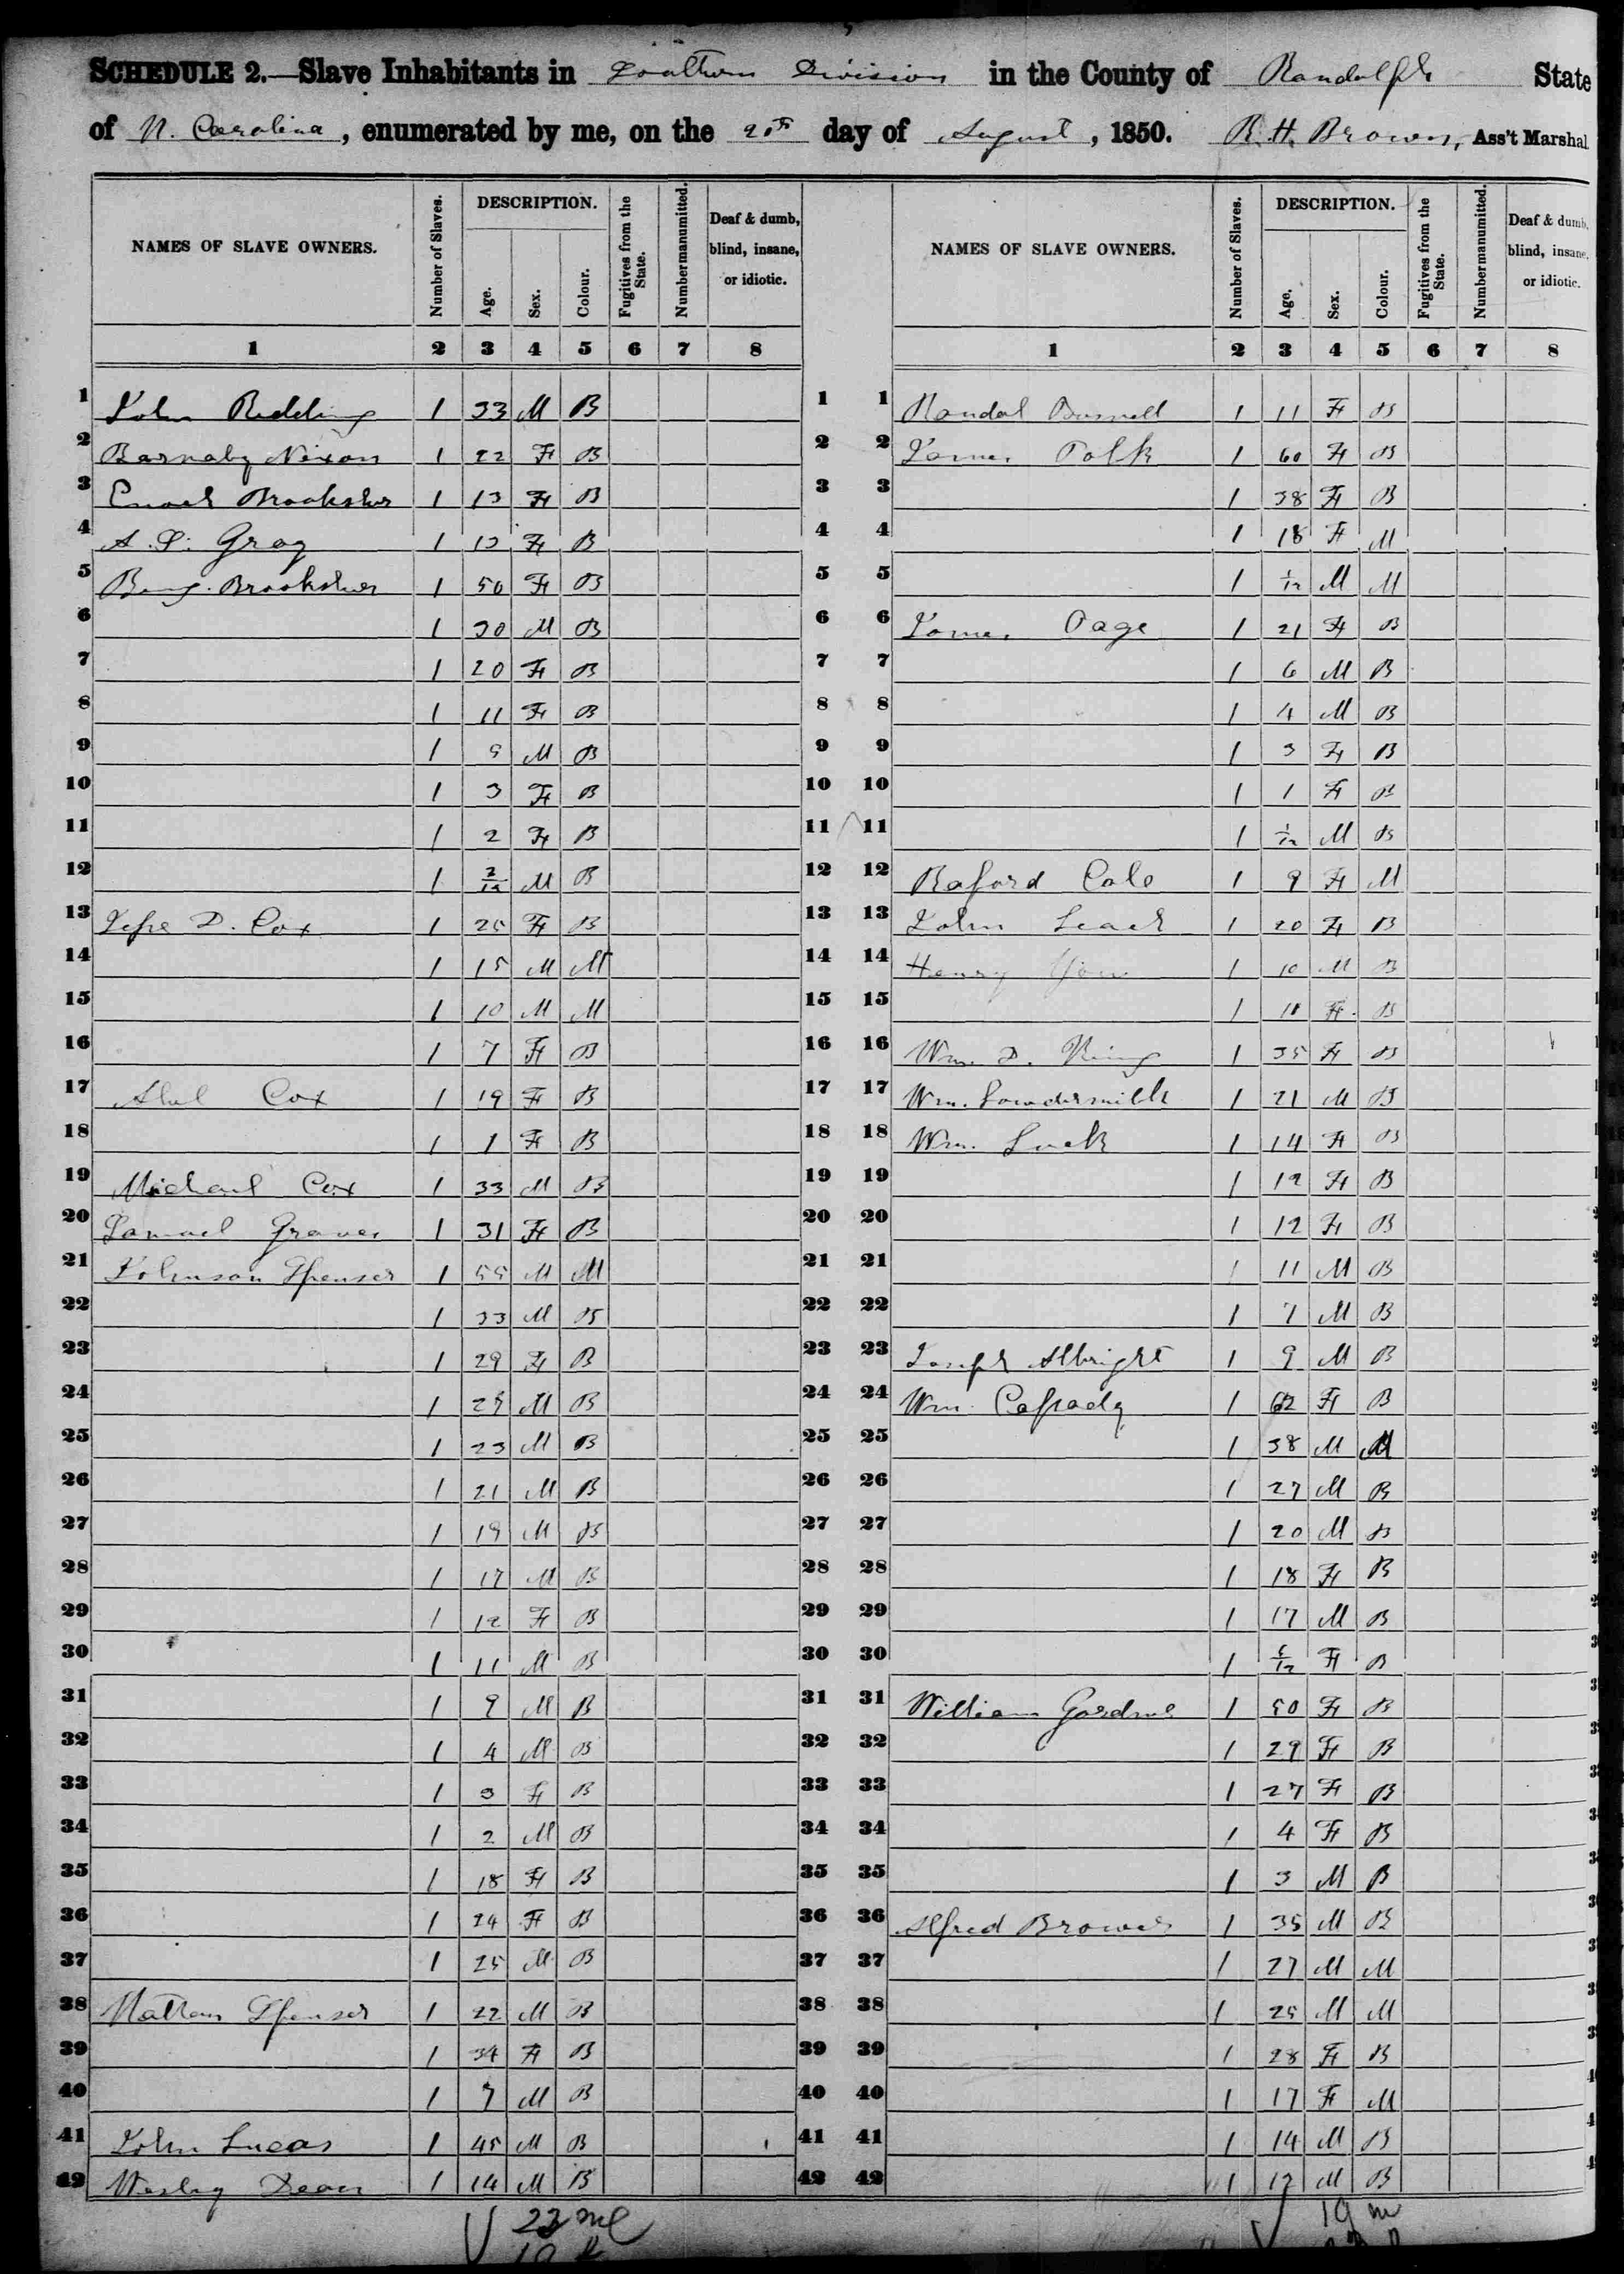 SCHEDULE 2.—Slave Inhabitants in Southern Division in the County of Randolph State
of N. Carolina, enumerated by me, on the 20th day of August, 1850. B. H. Brown, Ass't Marshal
NAMES OF SLAVE OWNERS. Number of Slaves. DESCRIPTION. Age. Sex. Colour. Fugitives from the State. Number manumitted. Deaf & dumb, blind, insane, or idiotic.
1 2 3 4 5 6 7 8
1 John Redding 1 33 M B 1
2 Barnaby Nixon 1 22 F B 2
3 Enoch Brooksher 1 13 F B 3
4 A. S. Gray 1 13 F B 4
5 Benj. Brooksher 1 50 F B 5
6 1 30 M B 6
7 1 20 F B 7
8 1 11 F B 8
9 1 9 M B 9
10 1 3 F B 10
11 1 2 F B 11
12 1 3/12 M B 12
13 Jesse D. Cox 1 25 F B 13
14 1 15 M M 14
15 1 10 M M 15
16 1 7 F B 16
17 Abel Cox 1 19 F B 17
18 1 1 F B 18
19 Michael Cox 1 33 M B 19
20 Samuel Graves 1 31 F B 20
21 Johnson Spenser 1 55 M M 21
22 1 33 M B 22
23 1 29 F B 23
24 1 25 M B 24
25 1 23 M B 25
26 1 21 M B 26
27 1 19 M B 27
28 1 17 M B 28
29 1 12 F B 29
30 1 11 M B 30
31 1 9 M B 31
32 1 4 M B 32
33 1 3 F B 33
34 1 2 M B 34
35 1 18 F B 35
36 1 24 F B 36
37 1 25 M B 37
38 Nathan Spenser 1 22 M B 38
39 1 34 F B 39
40 1 7 M B 40
41 John Lucas 1 45 M B 41
42 Wesley Dean 1 14 M B 42
23 m
19 f
NAMES OF SLAVE OWNERS. Number of Slaves. DESCRIPTION. Age. Sex. Colour. Fugitives from the State. Number manumitted. Deaf & dumb, blind, insane, or idiotic.
1 2 3 4 5 6 7 8
1 Randal 1 11 F B
2 James Polk 1 60 F B
3 1 38 F B
4 1 18 F M
5 1 1/12 M M
6 James Page 1 21 F B
7 1 6 M B
8 1 4 M B
9 1 3 F B
10 1 1 F B
11 1 1/12 M B
12 Raford Cole 1 9 F M
13 John Leach 1 20 F B
14 Henry Yow 1 10 M B
15 1 18 F B
16 Wm. D. King 1 35 F B
17 Wm. Lowdermilk 1 21 M B
18 Wm. Luck 1 14 F B
19 1 12 F B
20 1 12 F B
21 1 11 M B
22 1 7 M B
23 Joseph Albright 1 9 M B
24 Wm. Cassady 1 62 F B
25 1 38 M M
26 1 27 M B
27 1 20 M B
28 1 18 F B
29 1 17 M B
30 1 6/12 F B
31 William Gardner 1 50 F B
32 1 29 F B
33 1 27 F B
34 1 4 F B
35 1 3 M B
36 Alfred Brower 1 35 M B
37 1 27 M M
38 1 25 M M
39 1 28 F B
40 1 17 F M
41 1 14 M B
42 1 12 M B
19 m